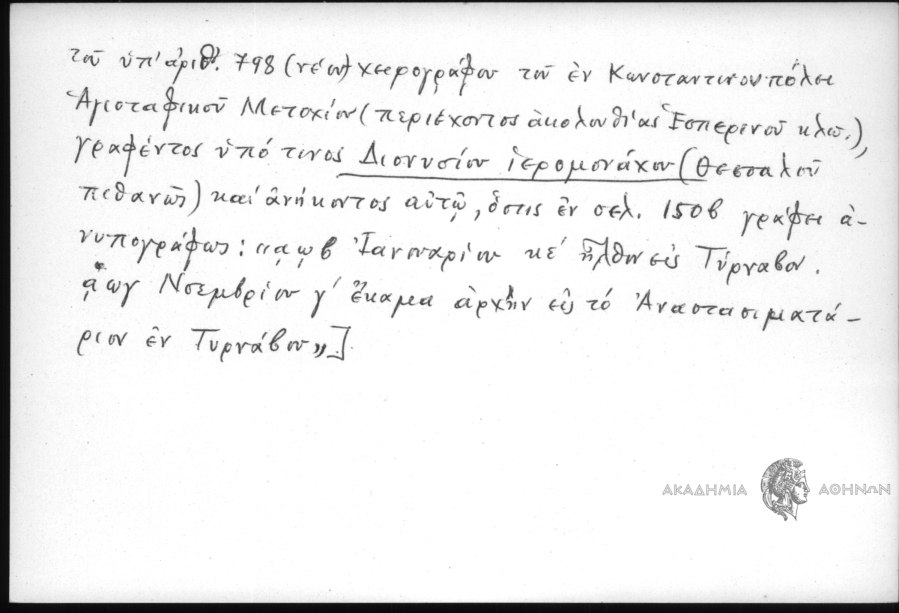 τοῦ ὑπ' ἀριθ. 798 (νέου) χειρογράφου τοῦ ἐν Κωνσταντινουπόλει
Ἁγιοταφικοῦ Μετοχίου (περιέχοντος ἀκολουθίας Ἑσπερινοῦ κλπ.),
γραφέντος ὑπό τινος Διονυσίου ἱερομονάχου (Θεσσαλοῦ
πιθανῶς) καὶ ἀνήκοντος αὐτῷ, ὅστις ἐν σελ. 150β γράφει ἀ-
νυπογράφως: «͵αωβ Ἰανουαρίου κε´ ἦλθον εἰς Τύρναβον.
͵αωγ Νοεμβρίου γ´ ἔκαμα ἀρχὴν εἰς τὸ Ἀναστασιματά-
ριον ἐν Τυρνάβου»].
ΑΚΑΔΗΜΙΑ ΑΘΗΝΩΝ